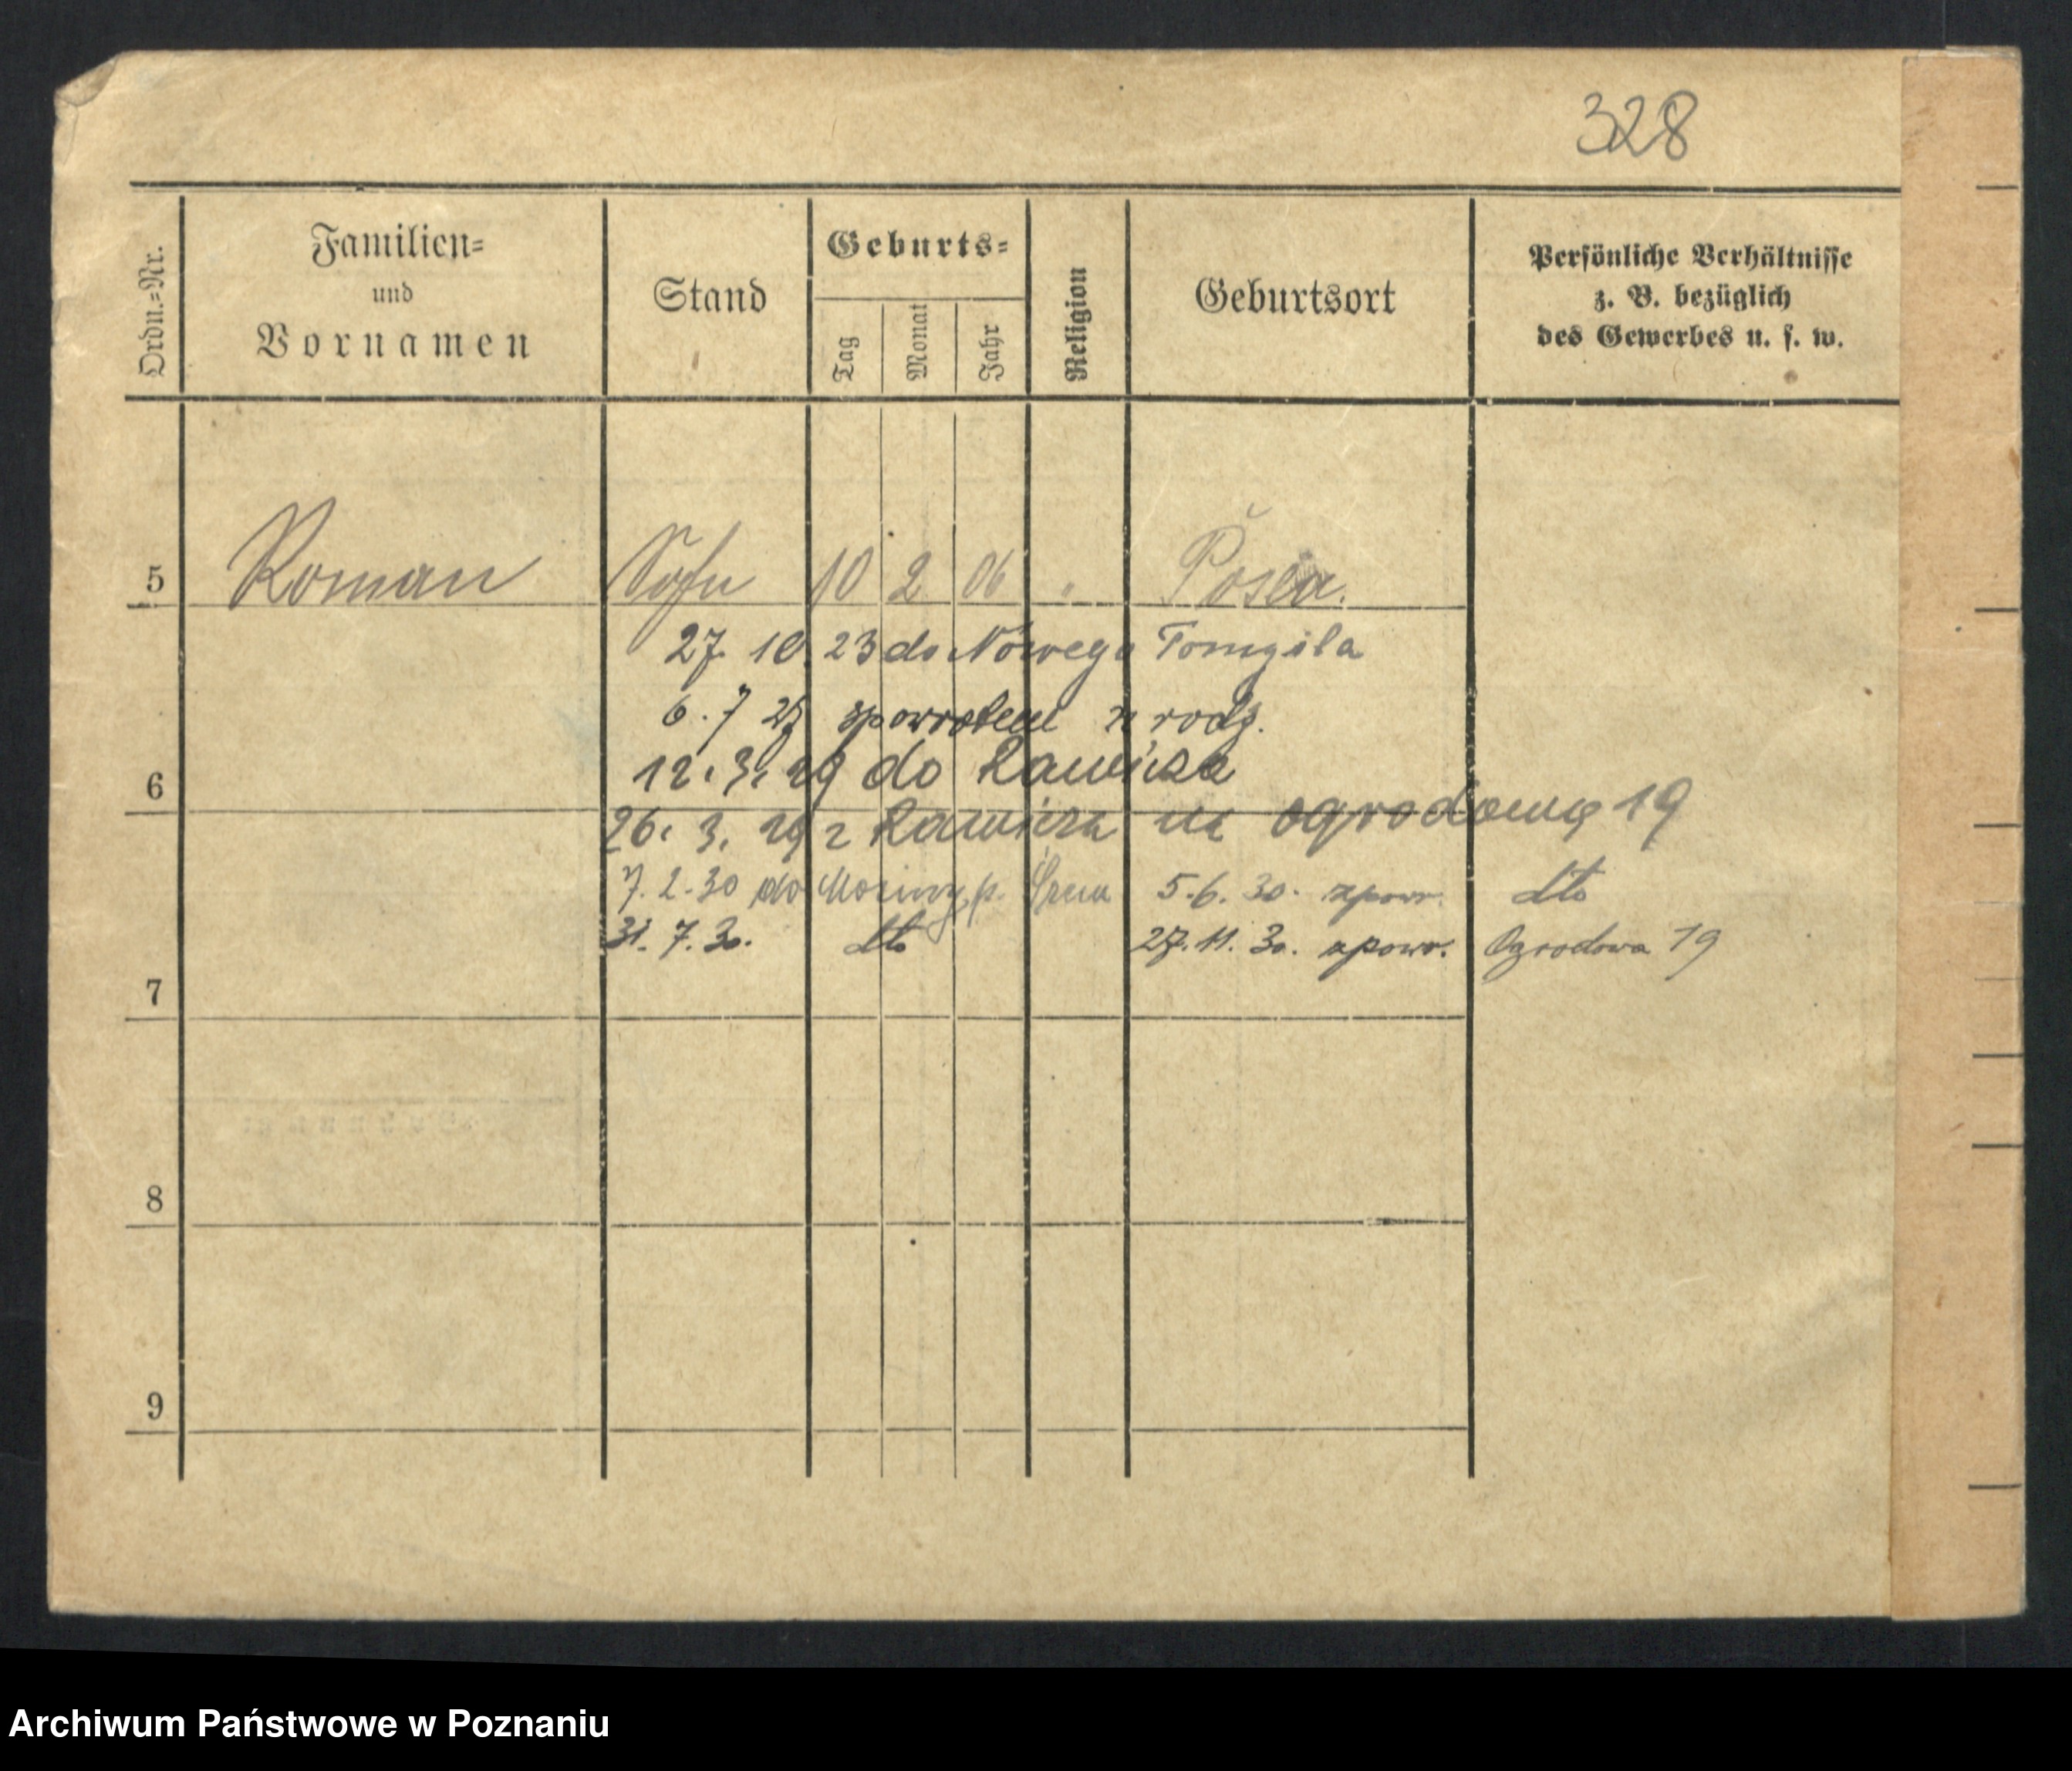 328
Ordn.=Nr.
Familien=
und
Vornamen
Stand
Geburts=
Tag
Monat
Jahr
Religion
Geburtsort
Persönliche Verhältnisse
z. B. bezüglich
des Gewerbes u. s. w.
5 Roman Sohn 10 2 06 " Posen.
27. 10. 23 do Nowego Tomyśla
6. 7 27 zpowrotem z rodz.
12. 3. 29 do Rawicza
6
26. 3. 29 z Rawicza na ogrodową 19
7. 2. 30 do Mosiny, p. Śrem 5. 6. 30. zpowr. dto
31. 7. 30. dto 27. 11. 30. zpowr. Ogrodowa 19
7
8
9
Archiwum Państwowe w Poznaniu